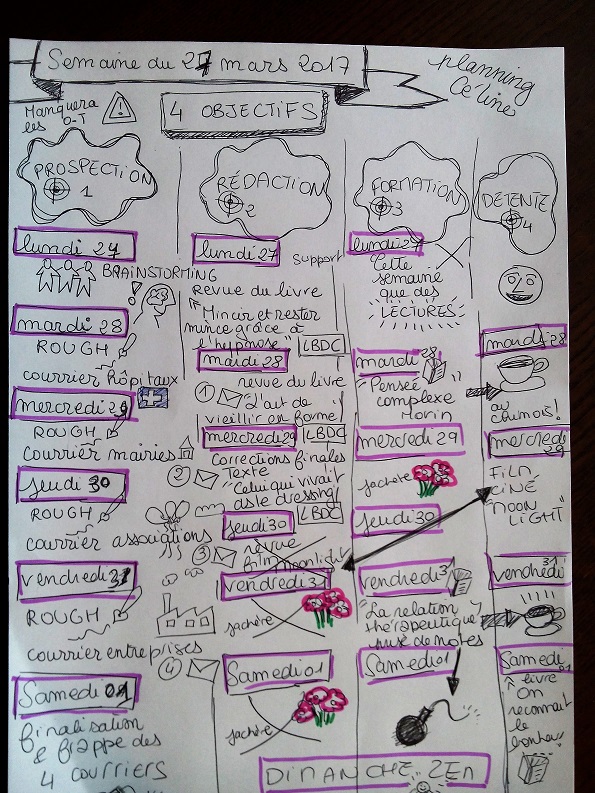 Semaine du 27 mars 2017
planning
Céline
Manquera
les O-T
4 OBJECTIFS
PROSPECTION
1
lundi 27
BRAINSTORMING
mardi 28
ROUGH
courrier hôpitaux
mercredi 29
ROUGH
courrier mairies
jeudi 30
ROUGH
courrier associations
vendredi 31
ROUGH
courrier entreprises
Samedi 01
finalisation
& frappe des
4 COURRIERS
RÉDACTION
2
lundi 27
support
Revue du livre
"Mincir et rester
mince grâce à
l'hypnose"
LBDC
mardi 28
revue du livre
1
"L'art de
vieillir en forme"
mercredi 29
LBDC
corrections finales
2
Texte
"Celui qui vivait
ds le dressing"
jeudi 30
LBDC
3
revue
film moonlight
vendredi 31
jachère
4
Samedi 01
jachère
FORMATION
3
lundi 27
Cette
semaine
que des
LECTURES
mardi 28
"Pensée
complexe"
Morin
mercredi 29
jachère
jeudi 30
vendredi 31
"La relation
thérapeutique"
prise de notes
Samedi 01
DÉTENTE
4
mardi 28
au
chamois!
mercredi
29
FILM
CINÉ
"MOON
LIGHT"
vendredi
31
Samedi
01
livre
On
reconnait
le
bonheur
DIMANCHE ZEN